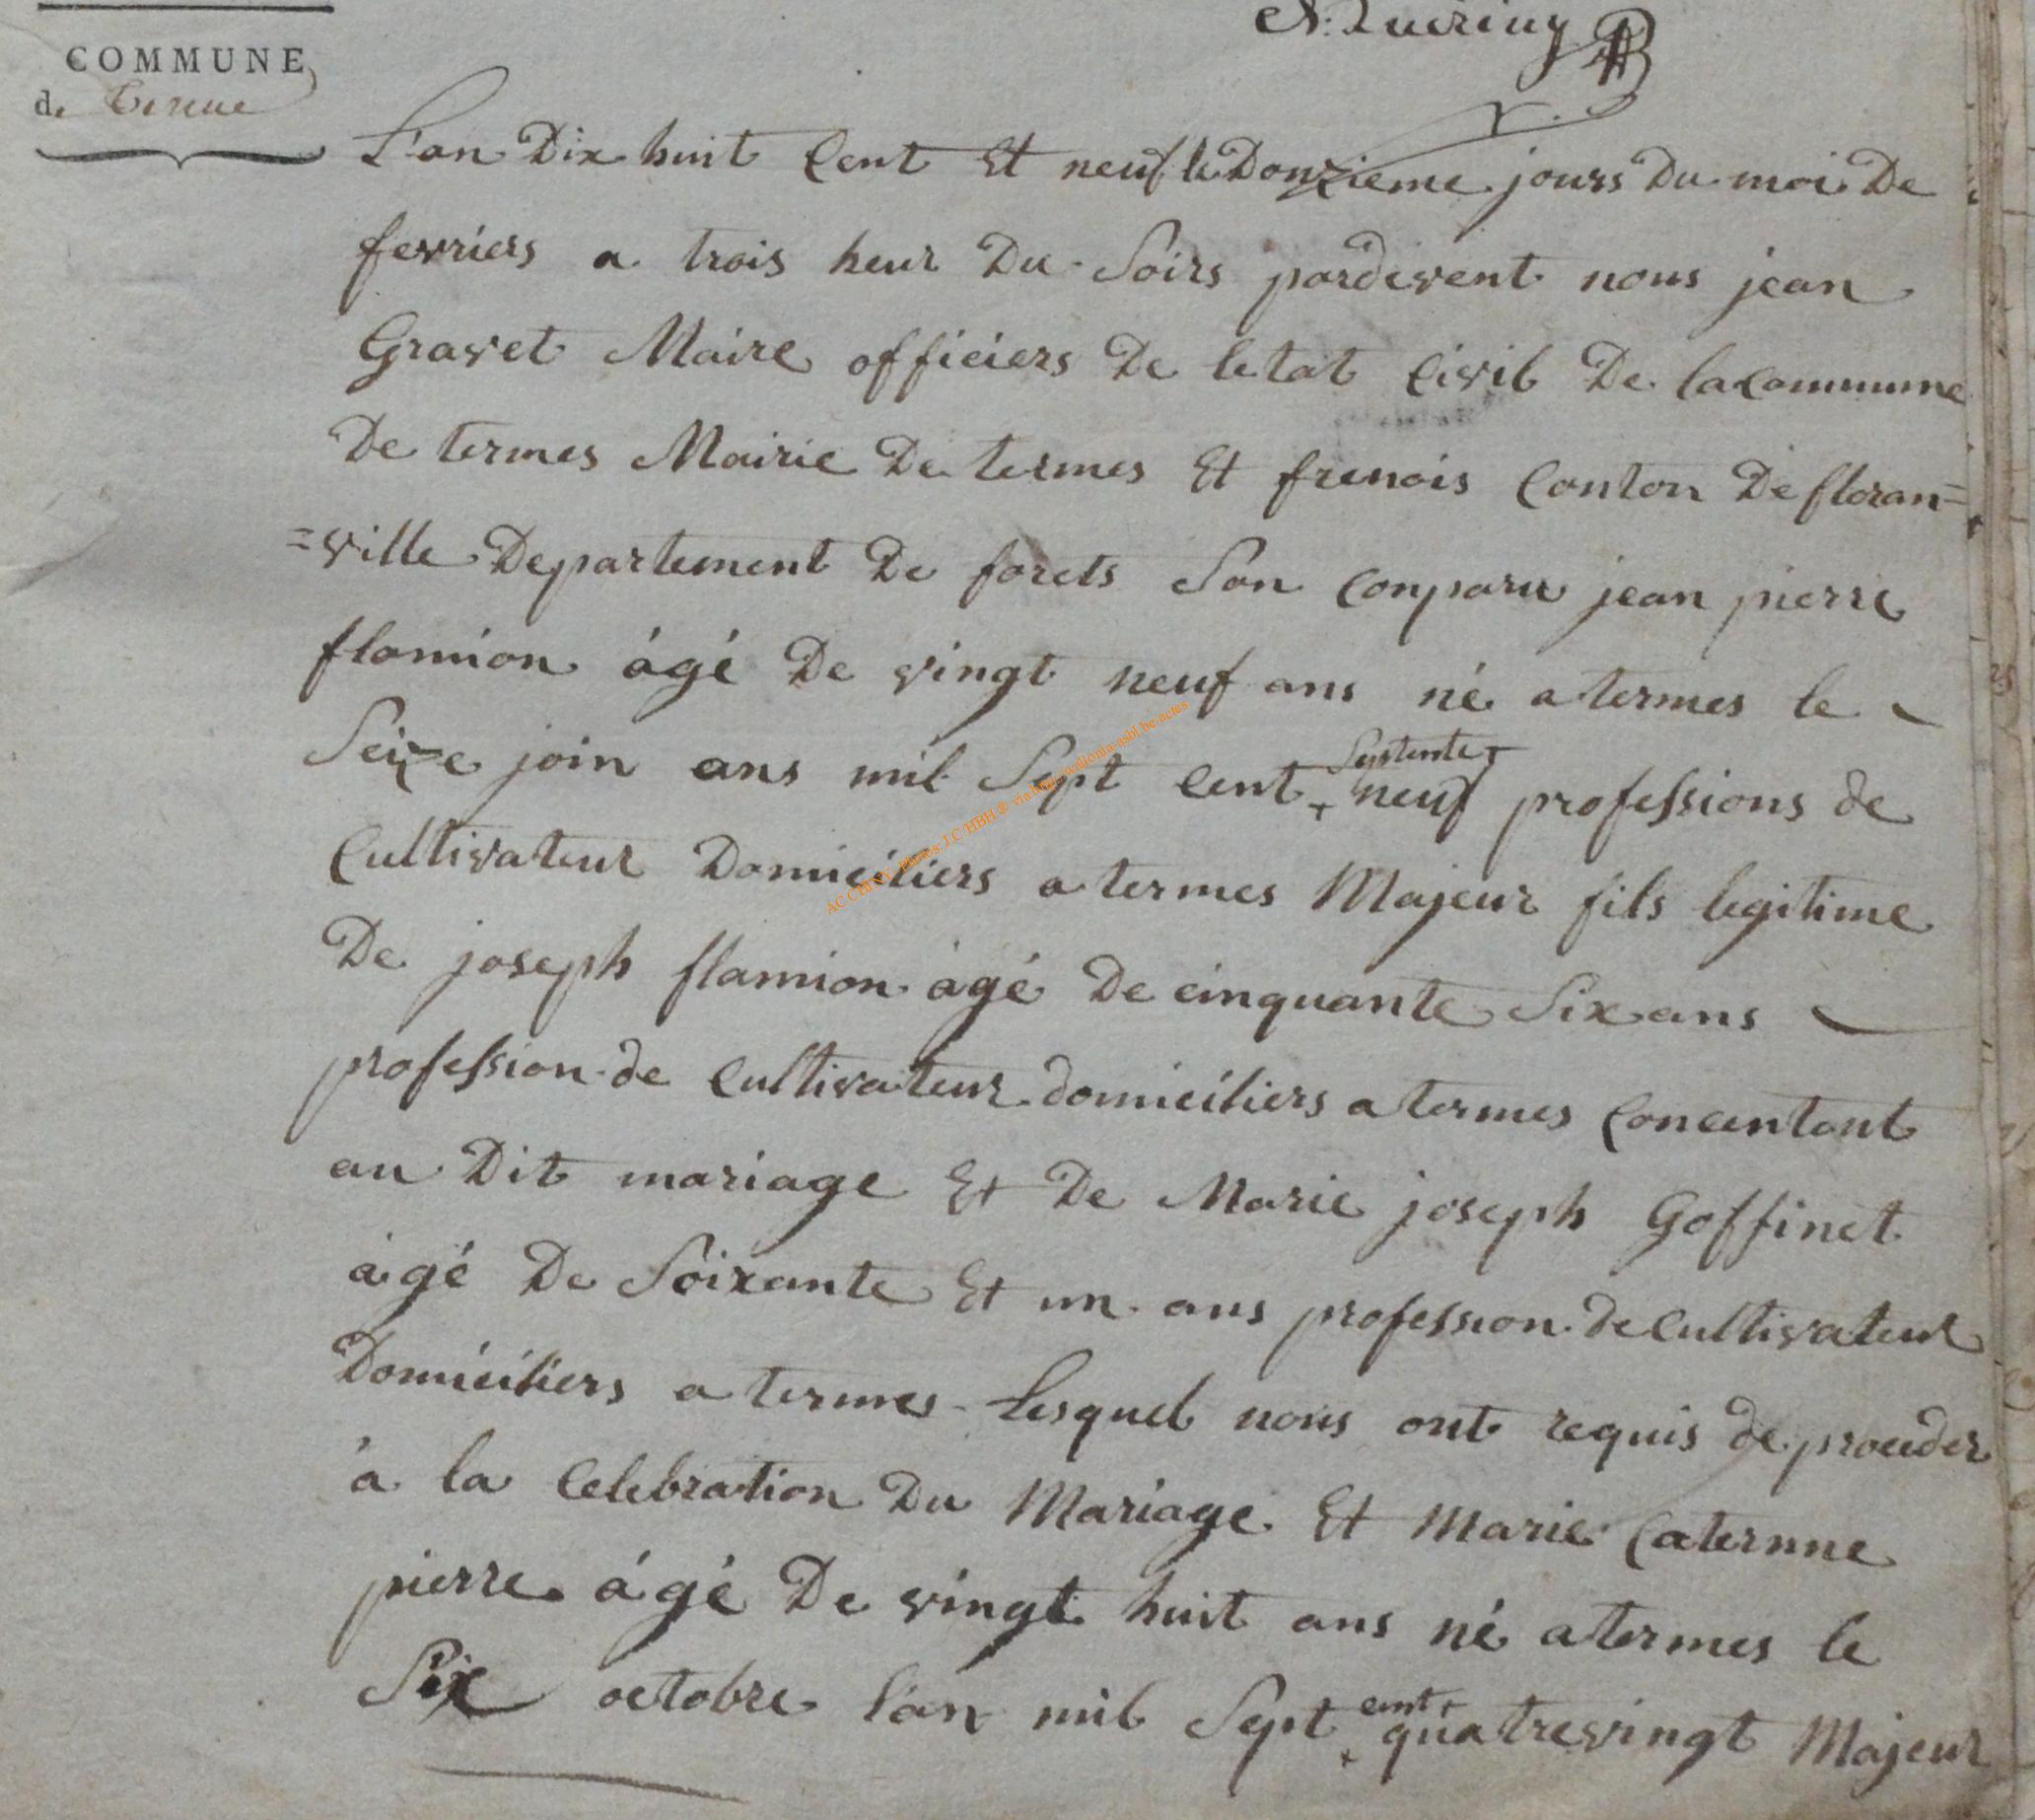 COMMUNE
de
L'an Dix huit Cent Et neuf le Douzieme jours Du moi De
fevriers a trois heur Du Soirs pardevent nous jean
Gravet Maire officiers De letat Civil De la Commune
De termes Mairie De termes Et frenois Canton De floran=
=ville Departement De forets Son Conparu jean pierre
flamion ágé De vingt neuf ans né a termes le
Seize join ans mil Sept Cent + Septente + neuf professions de
Cultivateur Domiciliers a termes Majeur fils legitime
De joseph flamion ágé De cinquante Six ans
profession de Cultivateur domiciliers a termes Concentant
au Dit mariage Et De Marie joseph Goffinet
ágé De Soixante Et un ans profession de Cultivateur
Domiciliers a termes Lesquel nous ont requis de proceder
a la Celebration Du Mariage Et Marie Caternne
pierre ágé De vingt huit ans né a termes le
Six octobre l'an mil Sept + cent + quatrevingt Majeur